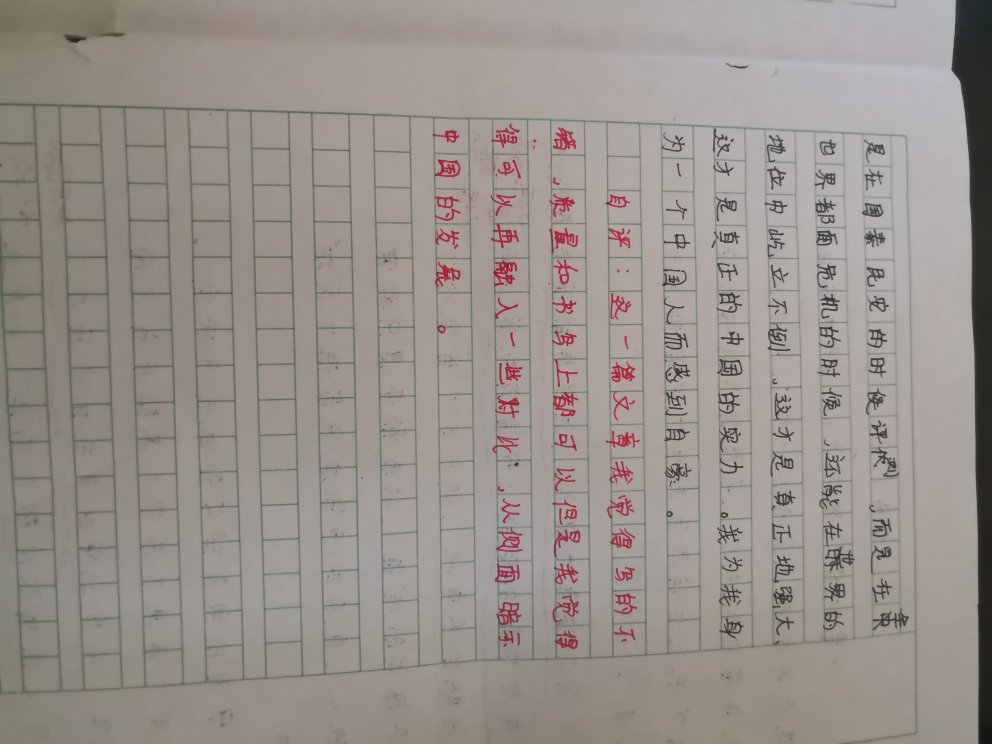 是在国泰民安的时侯评测，而是在全
世界都面危机的时候，还能在世界的
地位中屹立不倒，这才是真正地强大，
这才是真正的中国的实力。我为我身
为一个中国人而感到自豪。
自评：这一篇文章我觉得写的不
错，质量和书写上都可以但是我觉得
得可以再融入一些对比，从侧面暗示
中国的发展。